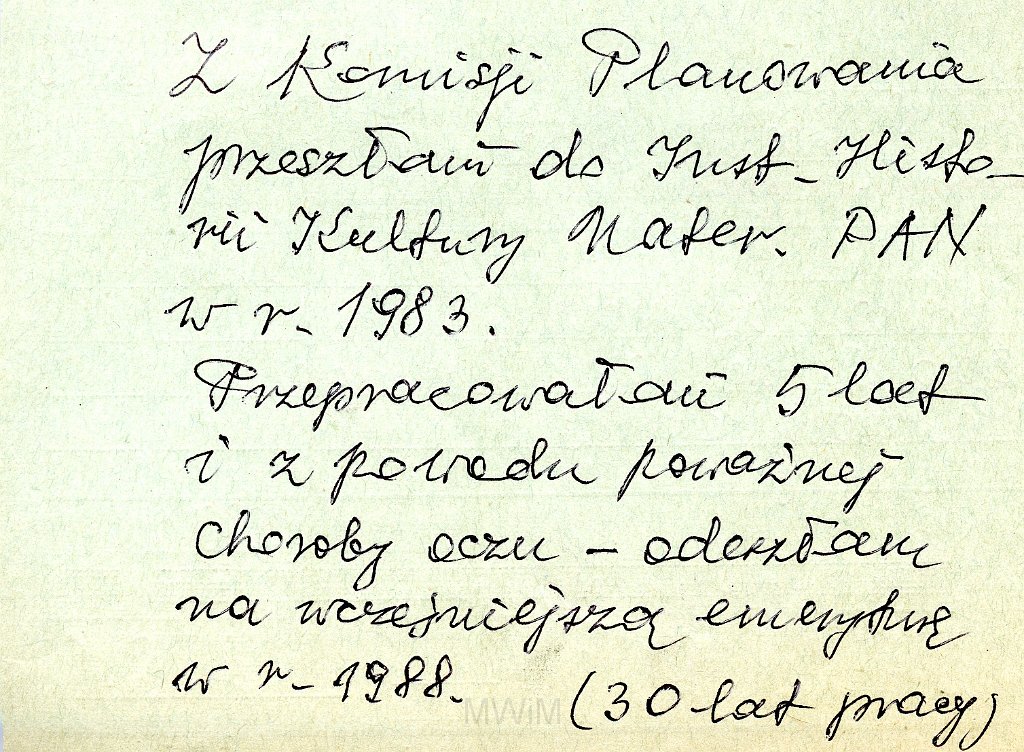 Z Komisji Planowania
przeszłam do Inst. Histo-
rii Kultury Mater. PAN
w r. 1983.
Przepracowałam 5 lat
i z powodu poważnej
choroby oczu – odeszłam
na wcześniejszą emeryturę
w r. 1988.
(30 lat pracy)
MWiM